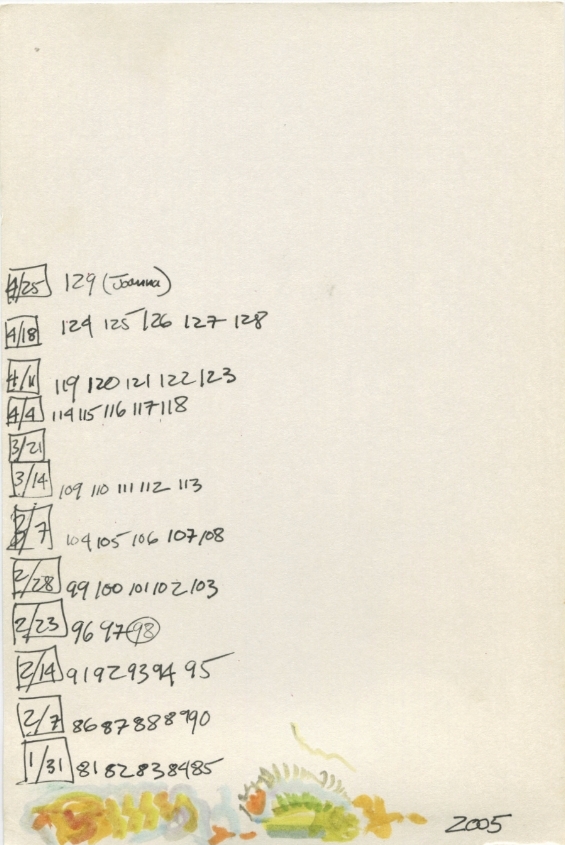 4/25 129 (Joanna)
4/18 124 125 126 127 128
4/11 119 120 121 122 123
4/4 114 115 116 117 118
3/21
3/14 109 110 111 112 113
3/7 104 105 106 107 108
2/28 99 100 101 102 103
2/23 96 97 98
2/14 91 92 93 94 95
2/7 86 87 88 89 90
1/31 81 82 83 84 85
2005